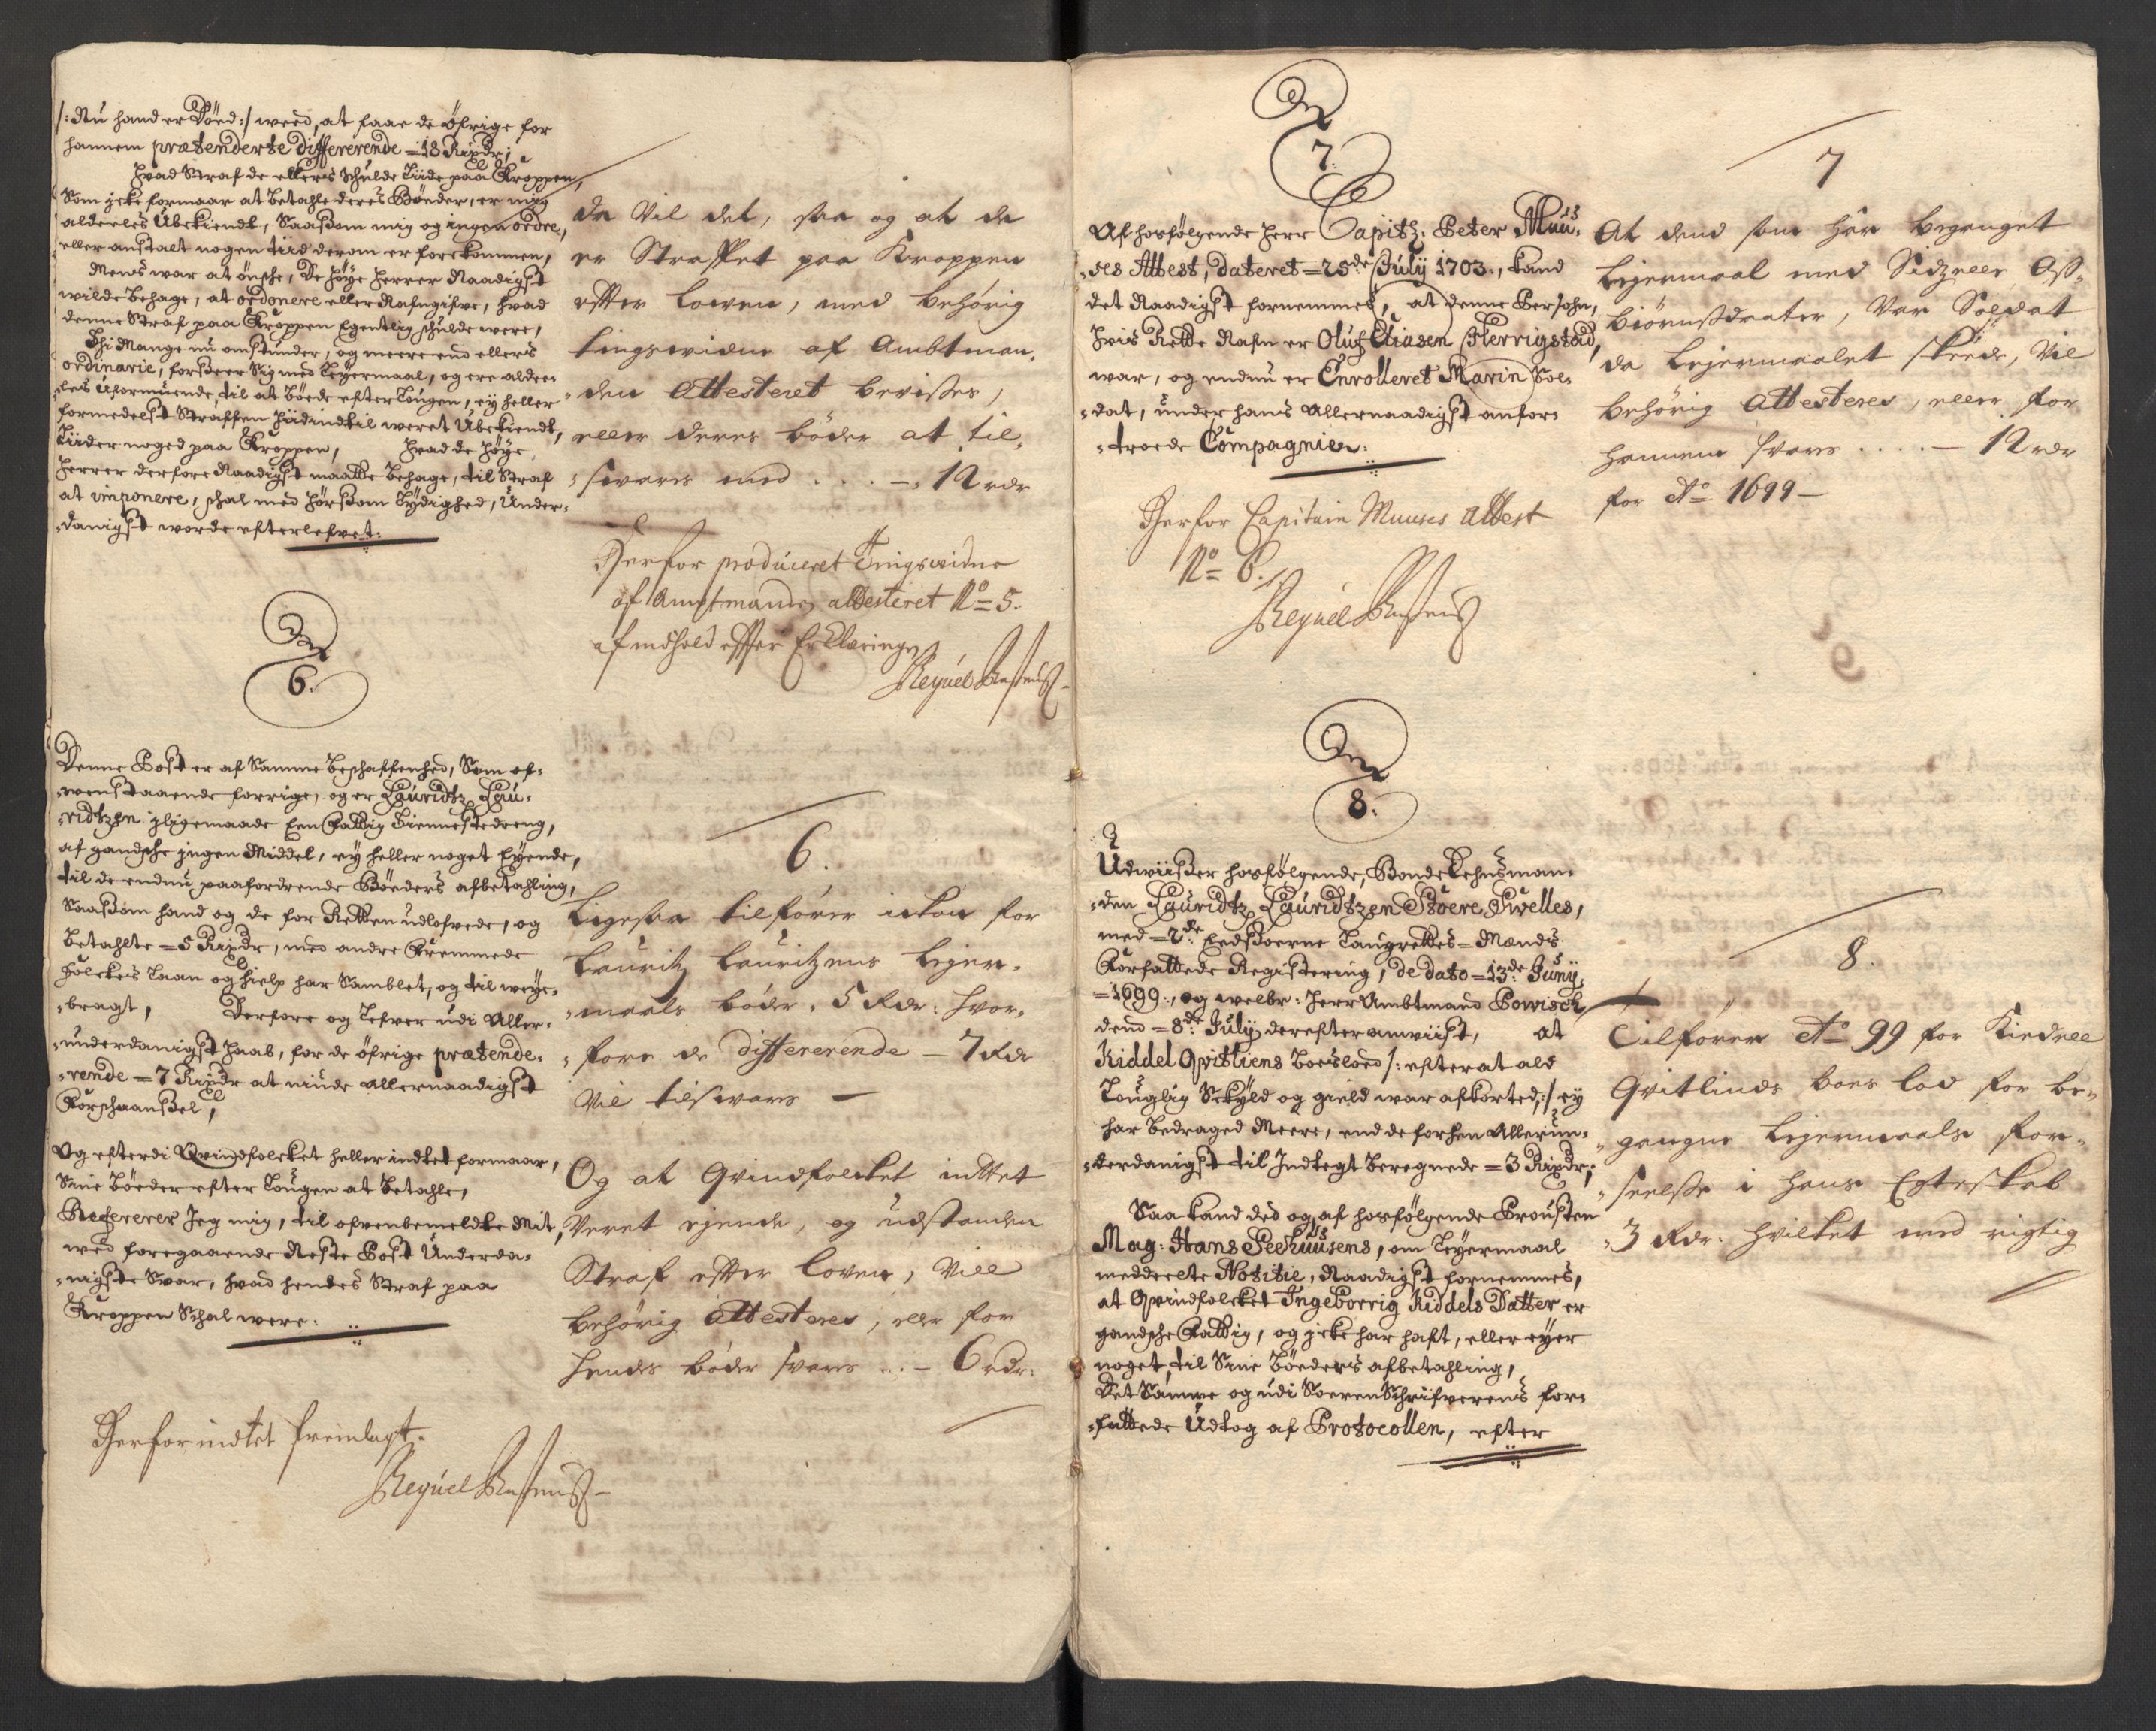 /: Nu hand er Död :/ weed, at faae de öfrige for
hannem prætenderte differerende = 18 Rixdr;
Hvad Straf de ellers schulde Liide paa Kroppen,
Som icke formaar at betahle deres Böeder, er mig
alderles Ubekiendt, Saasom mig og ingen ordre,
eller anstalt nogen tiid derom er forekommen,
Mens war at önsche, De Höye Herrer Naadigst
wilde behage, at ordonere eller Nafngifve, hvad
denne Straf paa Kroppen Egentlig schulde were,
Thi Mange nu omstunder, og meere end ellers
ordinarie, forseer Sig med Leyermaal, og ere alder-
-les Uformuende, til at Böede efter Lougen, ey heller
formedelst Straffen hidindtil weret Ubekiendt,
Liider noged paa Kroppen, Hvad de Höye
Herrer derfore Naadigst maatte behage, til Straf
at imponere, schal med hörsom Lydighed, Under-
-danigst worde efterlefvet:
6.
Denne Post er af Samme beschaffenhed, Som of-
-wenstaaende forrige, og er Lauridtz Lau-
-ridtzen iligemaade Een Fattig tienneste dreng,
af gandsche ingen Middel, ey heller noget Eyende,
til de endnu paafordrende Böeders afbetahling,
Saasom hand og de for Retten udlofvede, og
betahlte = 5 Rixdr, med andre Fremmede
Folckes Laan og hielp har Samblet, og til weye-
-bragt, Derfore og Lefver udi Aller-
-underdanigst Haab, for de öfrige prætende-
-rende = 7 Rixdr at niude allernaadigst
Forschaansel,
Og efterdi Qvindfolcket heller indtet formaar,
Sine Böeder efter Lougen at betahle,
Refererer Jeg mig, til ofvenbemeldte Mit,
wed foregaaende Neste Post Underda-
-nigste Svar, hvad hendes Straf paa
Kroppen Schal were:
Herfor indtet fremlagt.
da Vil det, saa og at de
er Straffet paa Kroppen
efter Loven, med behörig
tingsvidne af Ambtman-
-den Attesteret bevises,
eller deres böder at til-
-svares med . . . - 12 rdr
Herfor produceret Tingsvidne
af Amptmanden attesteret No 5.
af indhold efter Erklæringen
6.
Ligesaa tilförer icke for
Lauritz Lauritzens Leyer-
-maals böder. 5 Rdr: hvor-
-fore de differerende - 7 Rdr
Vil tilsvares -
Og at Qvindfolcket inttet
Veret ejende, og udstanden
Straf efter Loven, Vill
behörig Attesteres, eller for
hendes böder svares .. - 6 rdr.
7.
Af hosfölgende Herr Capitz: Peter Muu-
-ses Attest, dateret = 25de July 1703., kand
det Naadigst fornemmes, at denne Persohn,
hvis Rette Nafn er Oluf Eliasen Herrigstad,
war, og endnu er Enrolleret Marin Sol-
-dat, under hans Allernaadigst anfor-
-troede Compagnier:
Herfor Capitain Muuses attest
No 6.
8.
Udwiiser hosfölgende, Bonde Lehnsman-
-den Lauridtz Lauridtzen Stoere Qvelles,
med = 2de Eedsoerne Laugrettes = Mænds
Forfattede Registering, de dato = 13de Juny,
= 1699., og welbr: Herr Ambtmand Powisch
dend = 8de July derefter anwiist, at
Kiddel Qvitliens boeslod /: efter at ald
Louglig Schyld og gield war afkorted :/ ey
har bedraged Meere, end de forhen Allerun-
-derdanigst til Indtegt beregnede = 3 Rixdr;
Saa kand ded og af hosfölgende Prousten
Mag: Hans Seehuusens, om Leyermaal
meddeelte Notitie, Naadigst fornemmes,
at Qvindfolcket Ingeborrig Kiddels Datter er
gandsche Fattig, og icke har haft, eller eyer
noget, til Sine Böeders afbetahling,
Det Samme og udi Soeren Schrifverens for-
-fattede Udtog af Protocollen, efter
7
At dend som har begaaget
Lejermaal med Sidzelle Ass-
biörnsdaater, Var Soldat
da Lejermaalet skeede, Vil
behörig Attesteres, eller for
hannem svares . . . . - 12 rdr
for Ao 1699 -
8.
Tilförer Ao 99 for Kiedell
Qvitlinds boes lod for be-
-gangne Lejermaals for-
-seelse i hans Egteskab
-3 Rdr. hvilket med rigtig